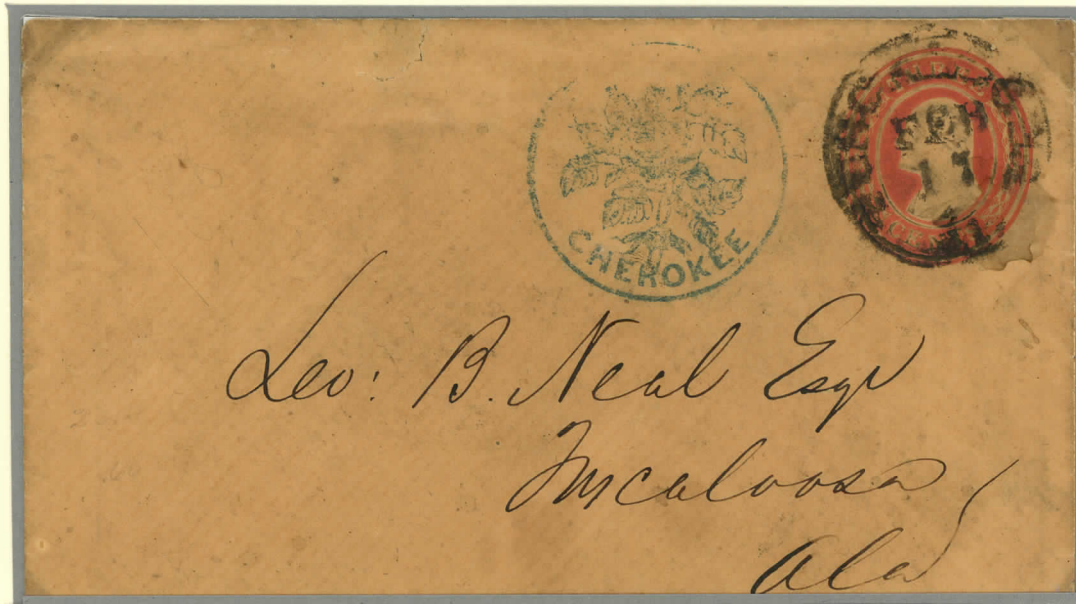 CHEROKEE
FEB
17
CENTS
Leo: B. Neal Esqr
Tuscaloosa
Ala